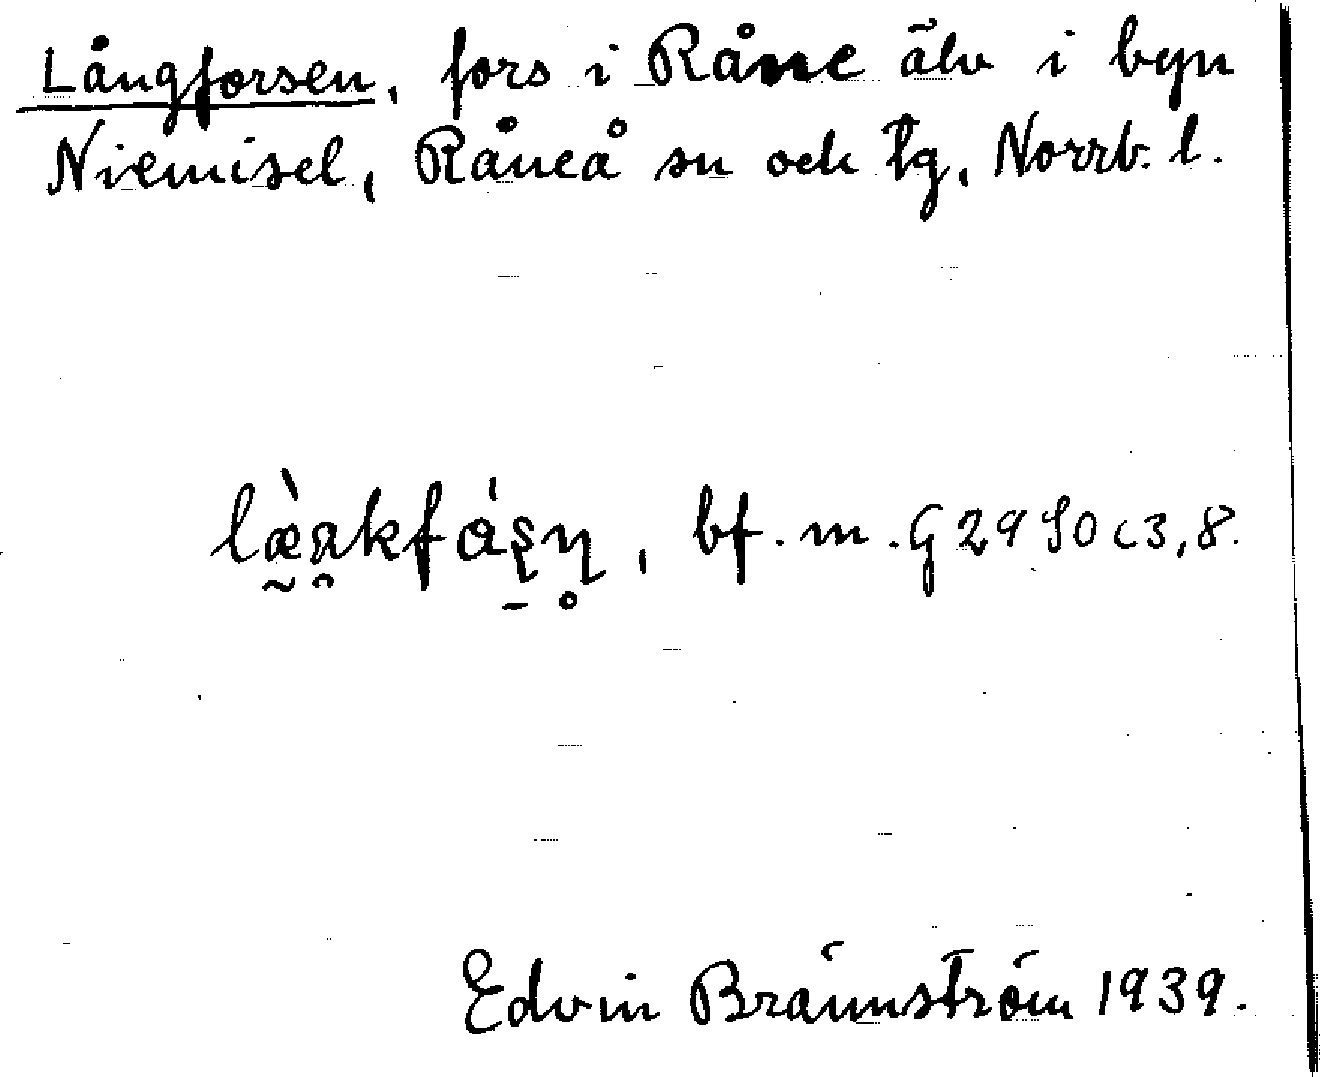 Långforsen, fors i Råne älv i byn
Niemisel, Råneå sn och tg, Norrb. l.
bf. m. G 29 S0 c3,8.
Edvin Brännström 1939.